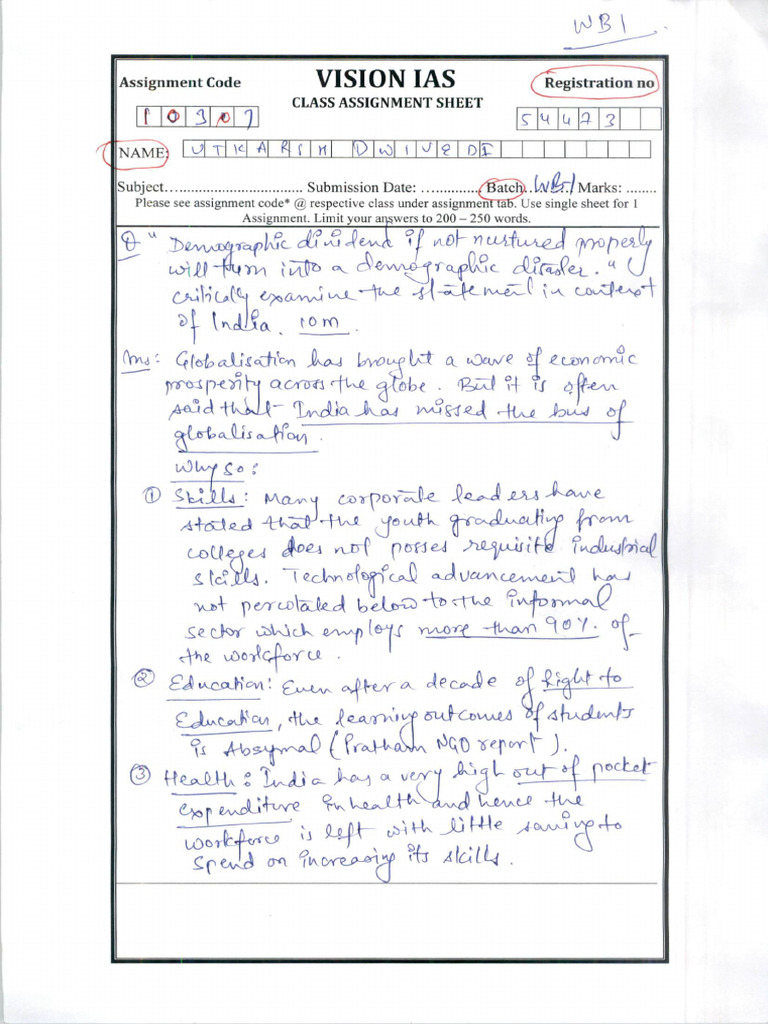 WB1
Assignment Code
VISION IAS
Registration no
CLASS ASSIGNMENT SHEET
10307
54473
NAME: UTKARSH DWIVEDI
Subject........................ Submission Date: .............. Batch...WB1 Marks: .......
Please see assignment code* @ respective class under assignment tab. Use single sheet for 1
Assignment. Limit your answers to 200 – 250 words.
Q "Demographic dividend if not nurtured properly
will turn into a demographic disaster."
critically examine the statement in context
of India. 10m
Ans: Globalisation has brought a wave of economic
prosperity across the globe. But it is often
said that India has missed the bus of
globalisation.
Why so:
① Skills: Many corporate leaders have
stated that the youth graduating from
colleges does not posses requisite industrial
skills. Technological advancement has
not percolated below to the informal
sector which employs more than 90% of
the workforce.
② Education: Even after a decade of Right to
Education, the learning outcomes of students
is Absymal (Pratham NGO report).
③ Health: India has a very high out of pocket
expenditure in health and hence the
workforce is left with little saving to
spend on increasing its skills.